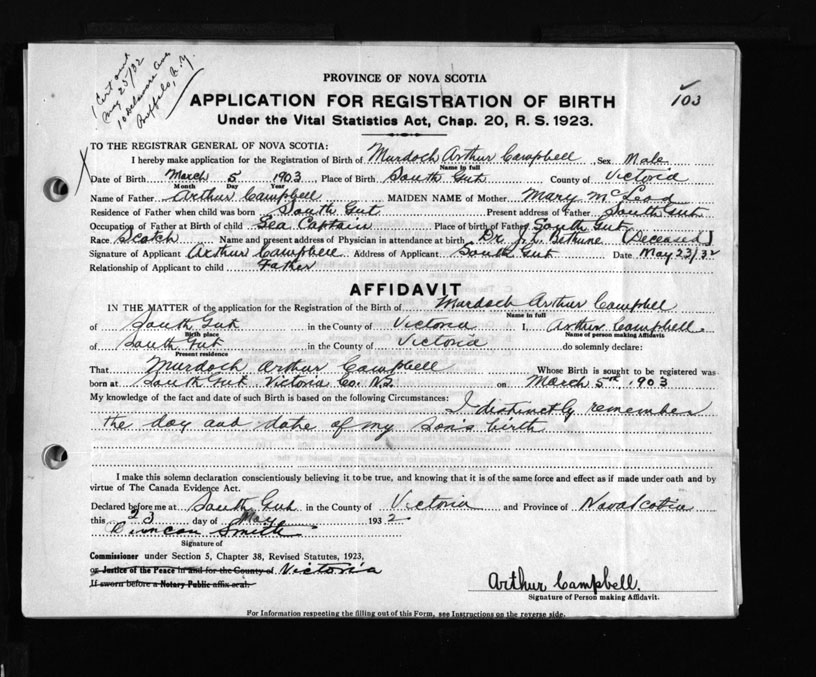 1 Cert sent
May 25/32
10 Delaware Ave
Buffalo, N.Y.
103
PROVINCE OF NOVA SCOTIA
APPLICATION FOR REGISTRATION OF BIRTH
Under the Vital Statistics Act, Chap. 20, R. S. 1923.
TO THE REGISTRAR GENERAL OF NOVA SCOTIA:
I hereby make application for the Registration of Birth of Murdoch Arthur Campbell, Sex Male
Name in full
Date of Birth March 5 1903 Place of Birth South Gut County of Victoria
Month Day Year
Name of Father Arthur Campbell MAIDEN NAME of Mother Mary McLeod
Residence of Father when child was born South Gut Present address of Father South Gut
Occupation of Father at Birth of child Sea Captain Place of birth of Father South Gut
Race Scotch Name and present address of Physician in attendance at birth Dr. J. L. Bethune (Deceased)
Signature of Applicant Arthur Campbell Address of Applicant South Gut Date May 23/32
Relationship of Applicant to child Father
AFFIDAVIT
IN THE MATTER of the application for the Registration of the Birth of Murdoch Arthur Campbell
Name in full
of South Gut in the County of Victoria I, Arthur Campbell
Birth place Name of person making Affidavit
of South Gut in the County of Victoria do solemnly declare:
Present residence
That Murdoch Arthur Campbell Whose Birth is sought to be registered was
born at South Gut Victoria Co. N.S. on March 5th 1903
My knowledge of the fact and date of such Birth is based on the following Circumstances:
I distinctly remember
the day and date of my son's birth
I make this solemn declaration conscientiously believing it to be true, and knowing that it is of the same force and effect as if made under oath and by
virtue of The Canada Evidence Act.
Declared before me at South Gut in the County of Victoria and Province of Nova Scotia
this 23 day of May 1932
Duncan Smith
Signature of
Commissioner under Section 5, Chapter 38, Revised Statutes, 1923,
or Justice of the Peace in and for the County of Victoria
If sworn before a Notary Public affix seal.
Arthur Campbell.
Signature of Person making Affidavit.
For Information respecting the filling out of this Form, see Instructions on the reverse side.